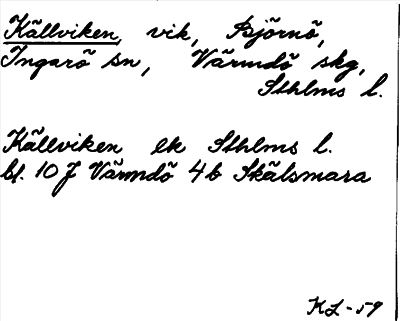 Källviken, vik, Björnö,
Ingarö sn, Värmdö skg,
Sthlms l.
Källviken ek Sthlms l.
bl. 10 J Värmdö 4b Skälsmara
KL-59